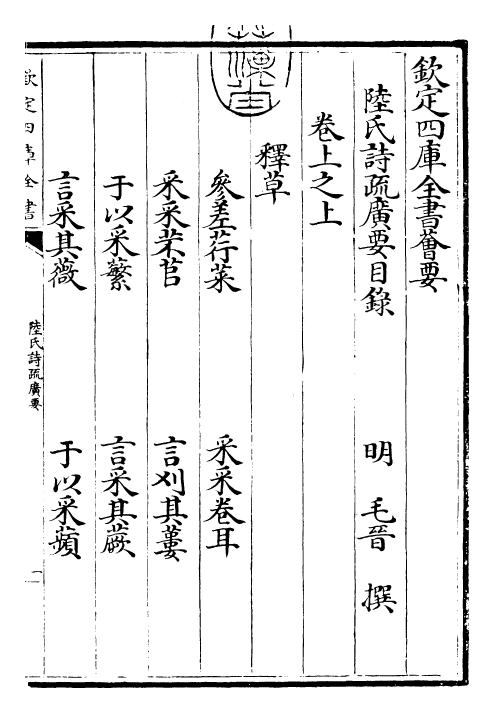 欽定四庫全書薈要
陸氏詩疏廣要目錄 明 毛晉 撰
卷上之上
釋草
參差荇菜 采采卷耳
采采芣苢 言刈其蔞
于以采蘩 言采其蕨
言采其薇 于以采蘋
欽定四庫全書
陸氏詩疏廣要